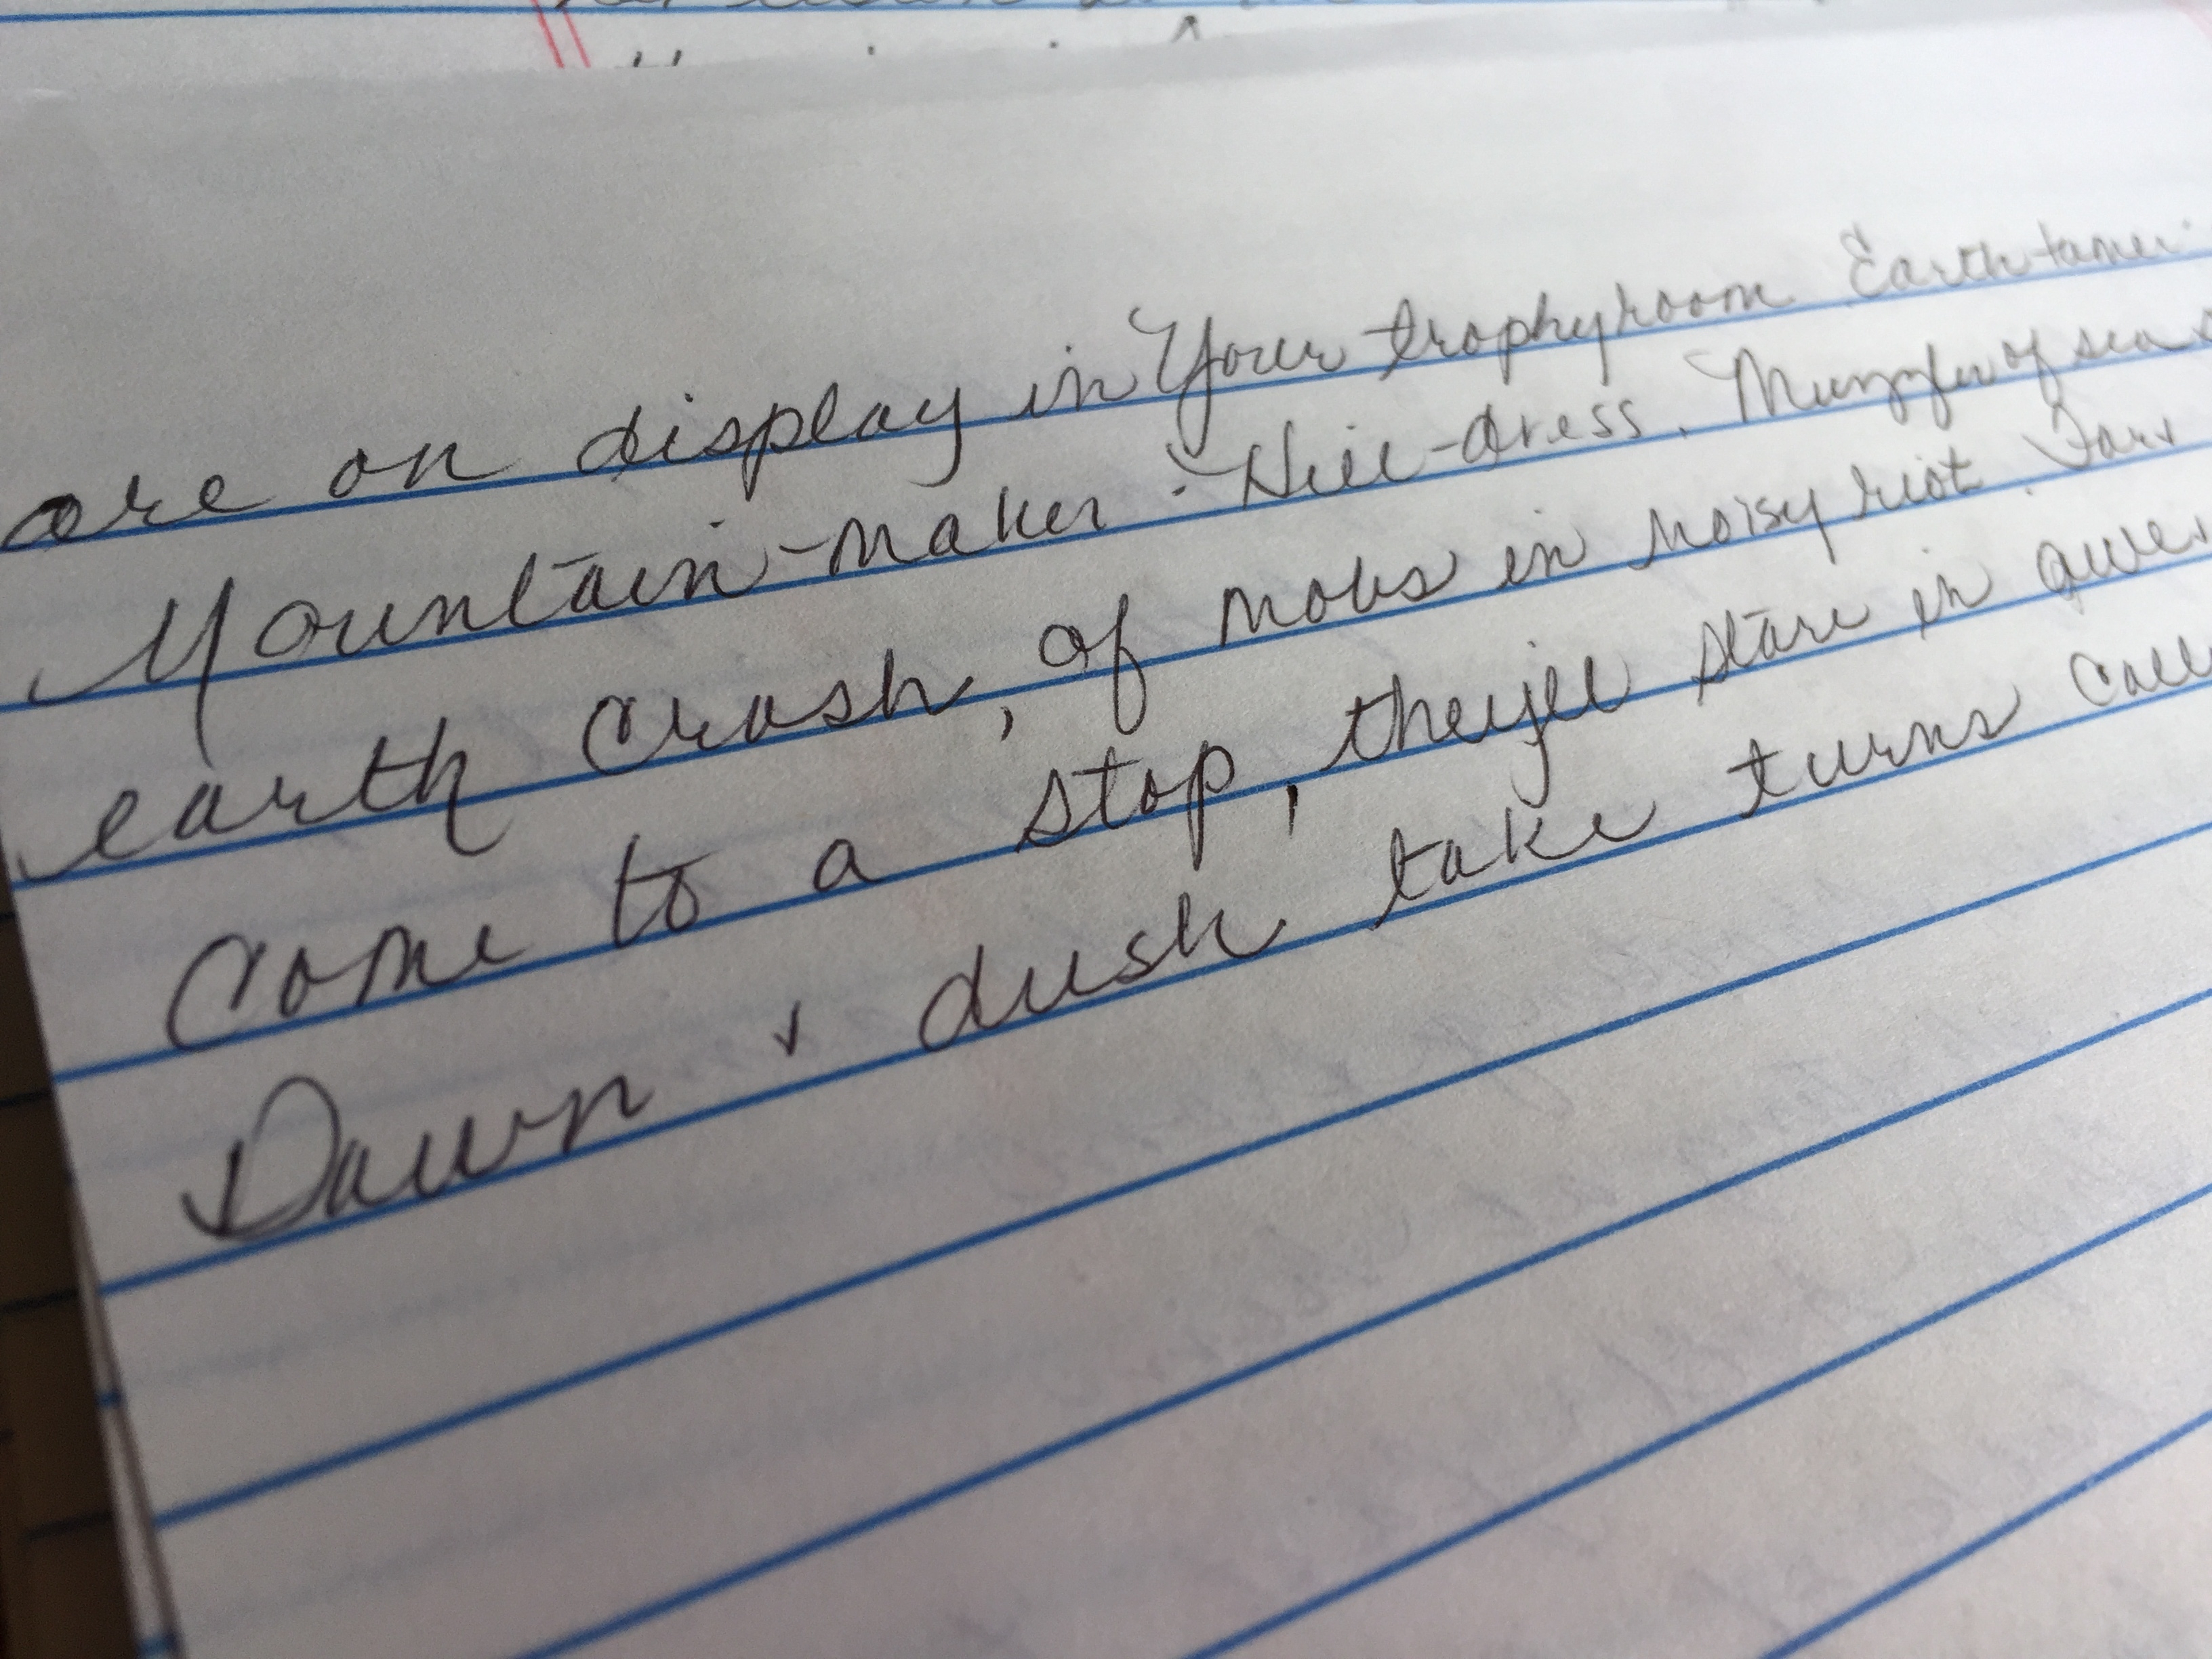 are on display in Your trophy room Earth-tamer
Mountain-maker. Hill-dress. Muzzler of sea
earth crash, of mobs in noisy riot. Far +
Come to a stop, they'll stare in awe
Dawn + dusk take turns call